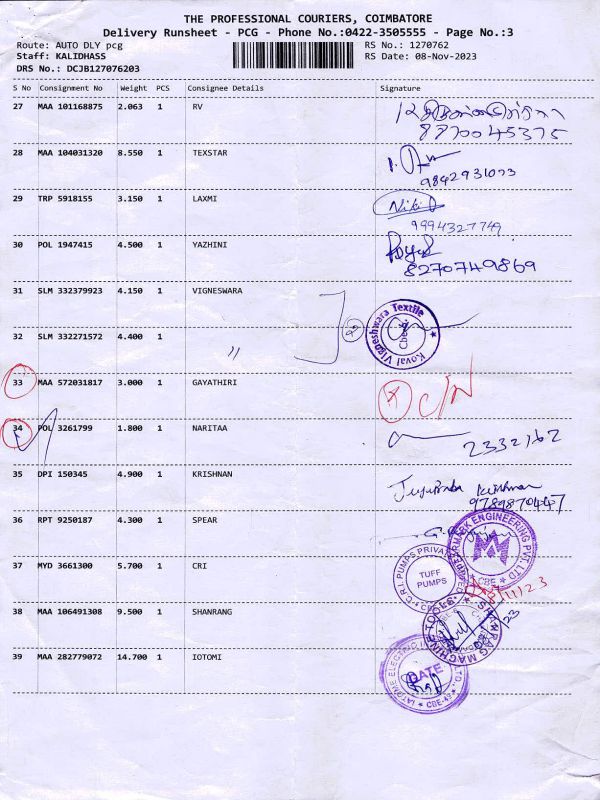 THE PROFESSIONAL COURIERS, COIMBATORE
Delivery Runsheet - PCG - Phone No.:0422-3505555 - Page No.:3
Route: AUTO DLY pcg RS No.: 1270762
Staff: KALIDHASS RS Date: 08-Nov-2023
DRS No.: DCJB127076203
S No Consignment No Weight PCS Consignee Details Signature
27 MAA 101168875 2.063 1 RV
8870045375
28 MAA 104031320 8.550 1 TEXSTAR
9842931073
29 TRP 5918155 3.150 1 LAXMI
9994327749
30 POL 1947415 4.500 1 YAZHINI
8270749869
31 SLM 332379923 4.150 1 VIGNESWARA
Kovai Vigneshwara Textile
32 SLM 332271572 4.400 1 〃
33 MAA 572031817 3.000 1 GAYATHIRI C/N
34 POL 3261799 1.800 1 NARITAA
2332162
35 DPI 150345 4.900 1 KRISHNAN
9789870447
36 RPT 9250187 4.300 1 SPEAR
37 MYD 3661300 5.700 1 CRI
C.R.I. PUMPS PRIVATE
TUFF
PUMPS
38 MAA 106491308 9.500 1 SHANRANG
39 MAA 282779072 14.700 1 IOTOMI
DATE